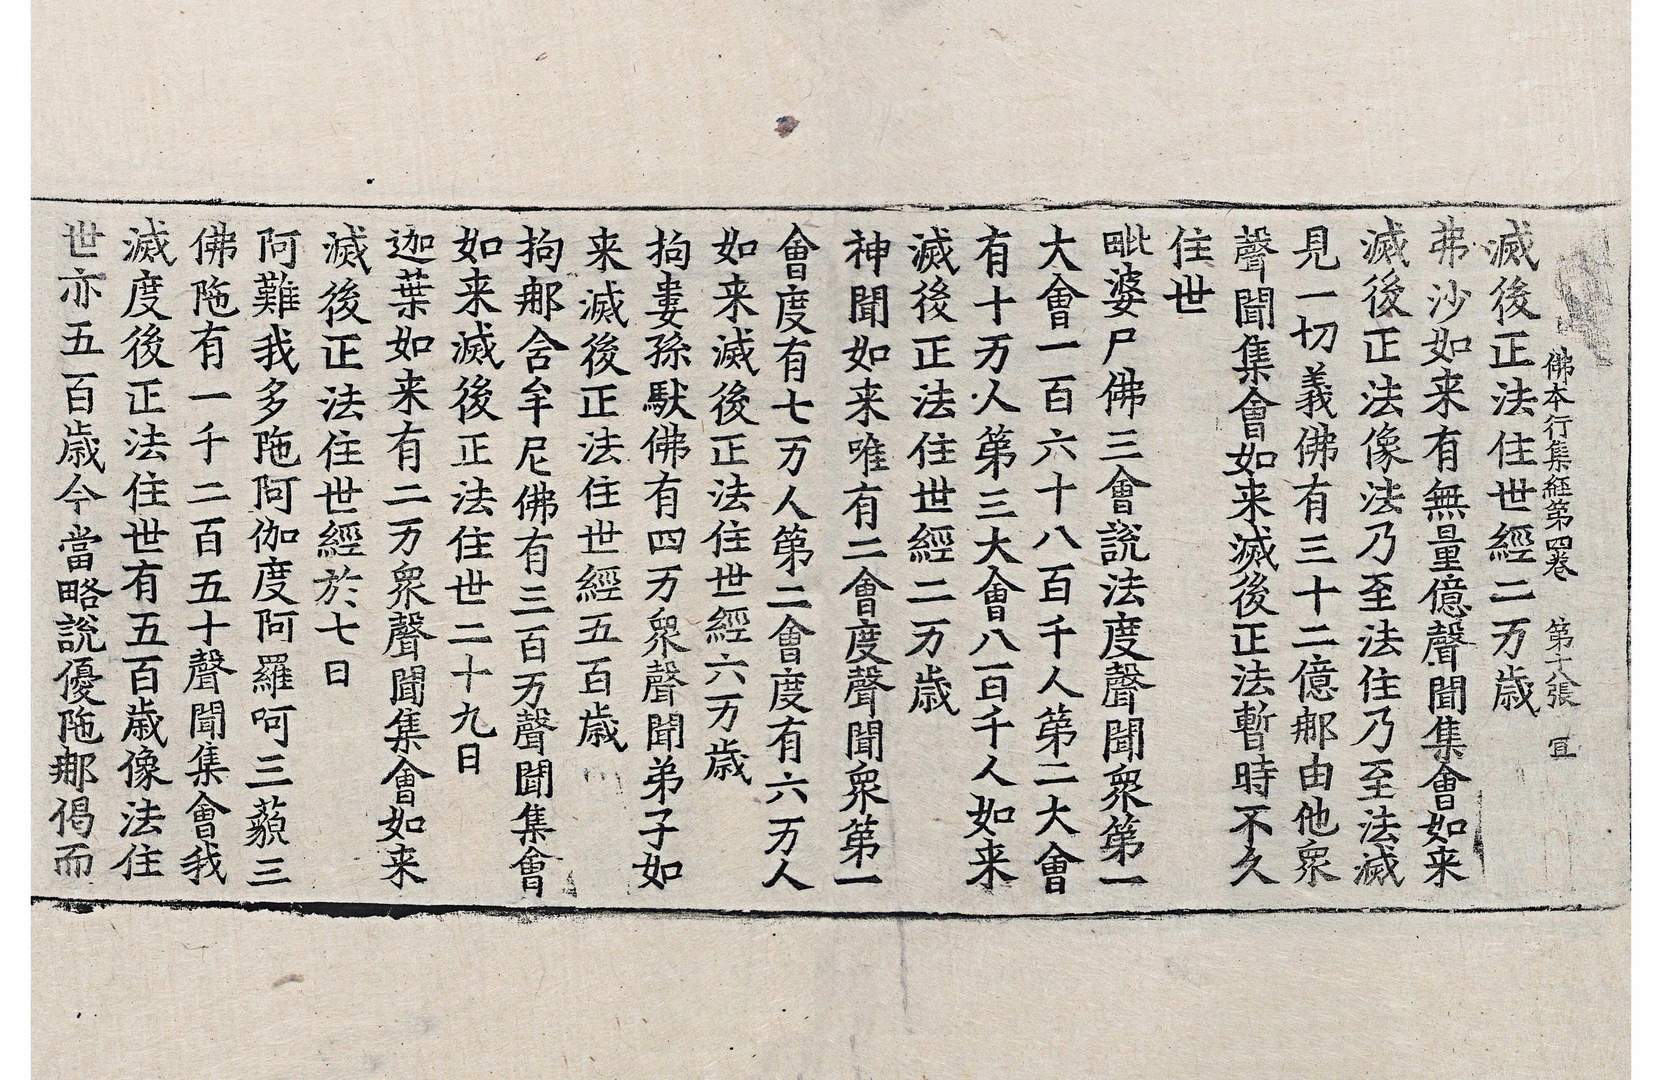 佛本行集經第四卷 第十八張 宜
滅後正法住世經二万歲
弗沙如来有無量億聲聞集會如来
滅後正法像法乃至法住乃至法滅
見一切義佛有三十二億那由他衆
聲聞集會如来滅後正法暫時不久
住世
毗婆尸佛三會說法度聲聞衆第一
大會一百六十八百千人第二大會
有十万人第三大會八百千人如来
滅後正法住世經二万歲
神聞如来唯有二會度聲聞衆第一
會度有七万人第二會度有六万人
如来滅後正法住世經六万歲
拘婁孫馱佛有四万衆聲聞弟子如
来滅後正法住世經五百歲
拘那含牟尼佛有三百万聲聞集會
如来滅後正法住世二十九日
迦葉如来有二万衆聲聞集會如来
滅後正法住世經於七日
阿難我多陁阿伽度阿羅呵三藐三
佛陁有一千二百五十聲聞集會我
滅度後正法住世有五百歲像法住
世亦五百歲今當略說優陁那偈而